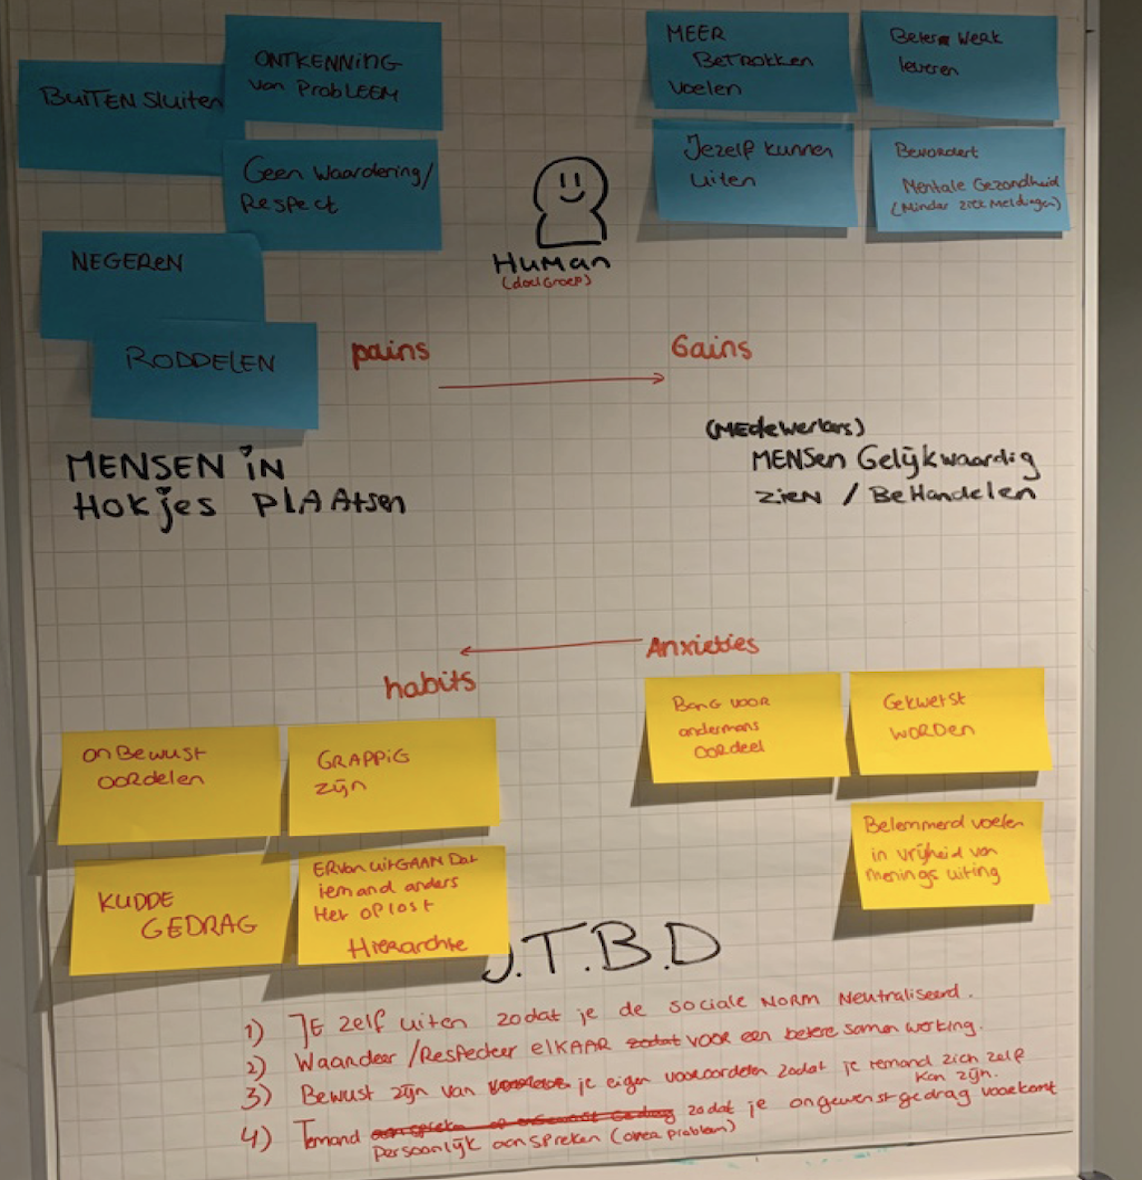 BUITEN SLuiten
ONTKENNING
van ProbLEEM
Geen Waardering/
Respect
NEGEREN
RODDELEN
MEER
BETROKKEN
Voelen
Betere Werk
leveren
Jezelf kunnen
uiten
Bevordert
Mentale Gezondheid
(Minder ziek Meldingen)
HUMan
(doelGroep)
pains
Gains
MENSEN iN
Hokjes PLAAtsen
(MEdewerkers)
MENSen Gelijkwaardig
ZIEN / BeHandelen
Anxieties
habits
onBewust
oordelen
GRAPPiG
zijn
KUDDE
GEDRAG
ERvan uitGAAN Dat
iemand anders
Het oplost
Hierarchie
Bang voor
andermans
oordeel
Gekwetst
WORDEN
Belemmerd voelen
in vrijheid van
menings uiting
J.T.B.D
1) JE zelf uiten zodat je de sociale NORM Neutraliseerd.
2) Waardeer /Respecteer elKAAR zodat VOOR een betere samen werking.
3) Bewust zijn van je eigen vooroordelen zodat je iemand zich zelf
kan zijn.
4) Iemand aanspreken op ongewenst Gedrag zodat je ongewenst gedrag voorkomt
persoonlijk aanspreken (over probleem)